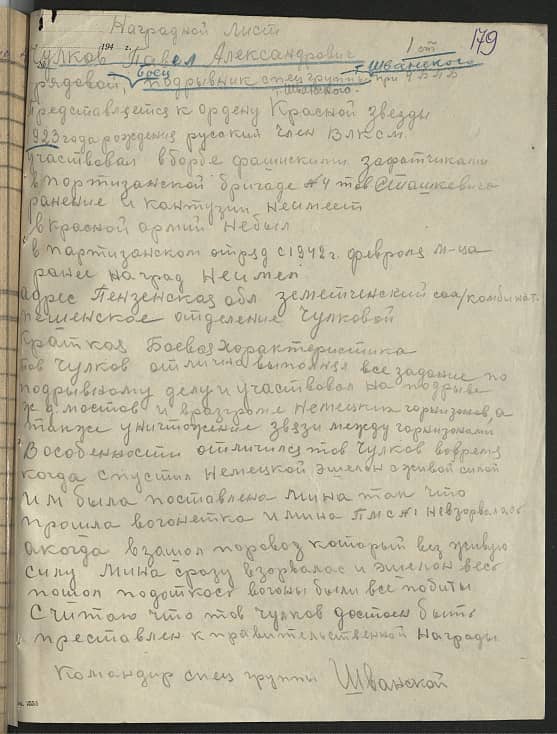 Наградной лист
194 г.
179
Чулков Павел Александрович 1 от.
рядовой, боец подрывник спец группы т. Шванского при
т. Шванского.
представляется к ордену Красной звезды
923 года рождения русский член ВЛКСМ.
участвовал в борбе фашискими захатчиками
в портизанской бригаде №4 тов Сташкевича
ранение и кантузии неимеет
в Красной армии небыл
в партизанском отряд с 1942 г. февроля м-ца
ранее наград неимел
адрес Пензенская обл земетченский сах/комбинат.
отделение Чулковой
краткоя Боевая характеристика
тов Чулков отлична выполнял все задание по
подрывному делу и участвовал на подрыве
ж д мостов и вразгроме немецких горнизонов, а
также уничтожение звязи между горнизонами
В особенности отличился тов Чулков вовремя
когда спустил немецкой эшелон с живой силой
им была поставлена мина так что
прошла вогонетка и мина ПМС №1 невзорвалась
а когда взашол поровоз который вез живую
силу мина сразу взорвалас и эшелон весь
пошол подоткос вогоны были все побиты
Считаю что тов Чулков достоен быть
преставлен к правительственной Награды
Командир спец группы Шванской